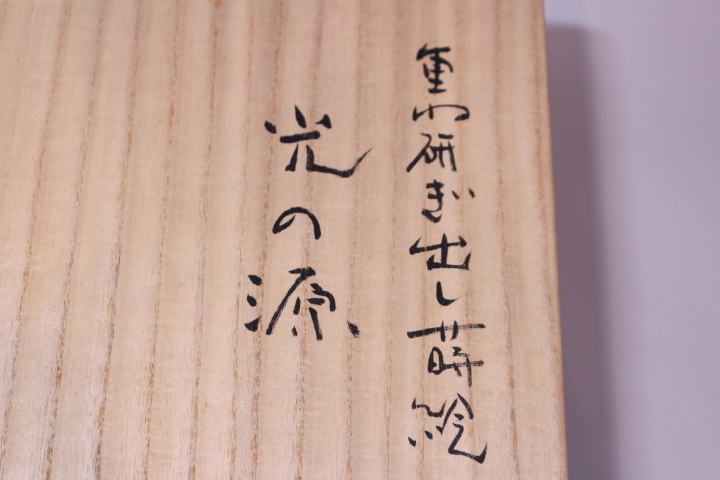 黒研ぎ出し蒔絵
光の源